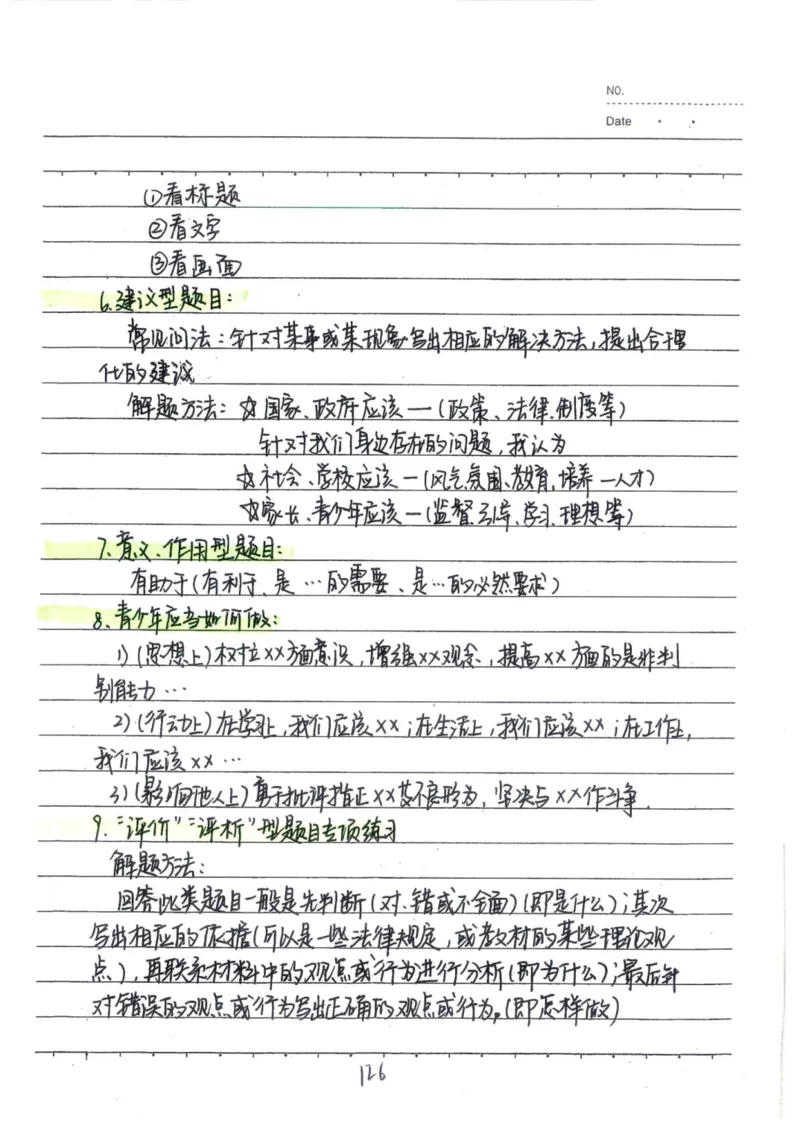 NO.
Date
①看标题
②看文字
③看画面
6.建议型题目:
常见问法:针对某事或某现象写出相应的解决方法,提出合理
化的建议
解题方法: ☆国家、政府应该—(政策、法律、制度等)
针对我们身边存在的问题,我认为
☆社会、学校应该—(风气氛围、教育、培养—人才)
☆家长、青少年应该—(监督引导、学习、理想等)
7.意义、作用型题目:
有助于(有利于、是…的需要、是…的必然要求)
8.青少年应当如何做:
1)(思想上)树立××方面意识,增强××观念,提高××方面的是非判
别能力…
2)(行动上)在学习上,我们应该××;在生活上,我们应该××;在工作上,
我们应该××…
3)(影响他人上)勇于批评指正××等不良行为,坚决与××作斗争.
9.“评价”“评析”型题目专项练习
解题方法:
回答此类题目一般是先判断(对、错或不全面)(即是什么);其次
写出相应的依据(可以是一些法律规定,或教材的某些理论观
点),再联系材料中的观点或行为进行分析(即为什么);最后针
对错误的观点或行为写出正确的观点或行为。(即怎样做)
126